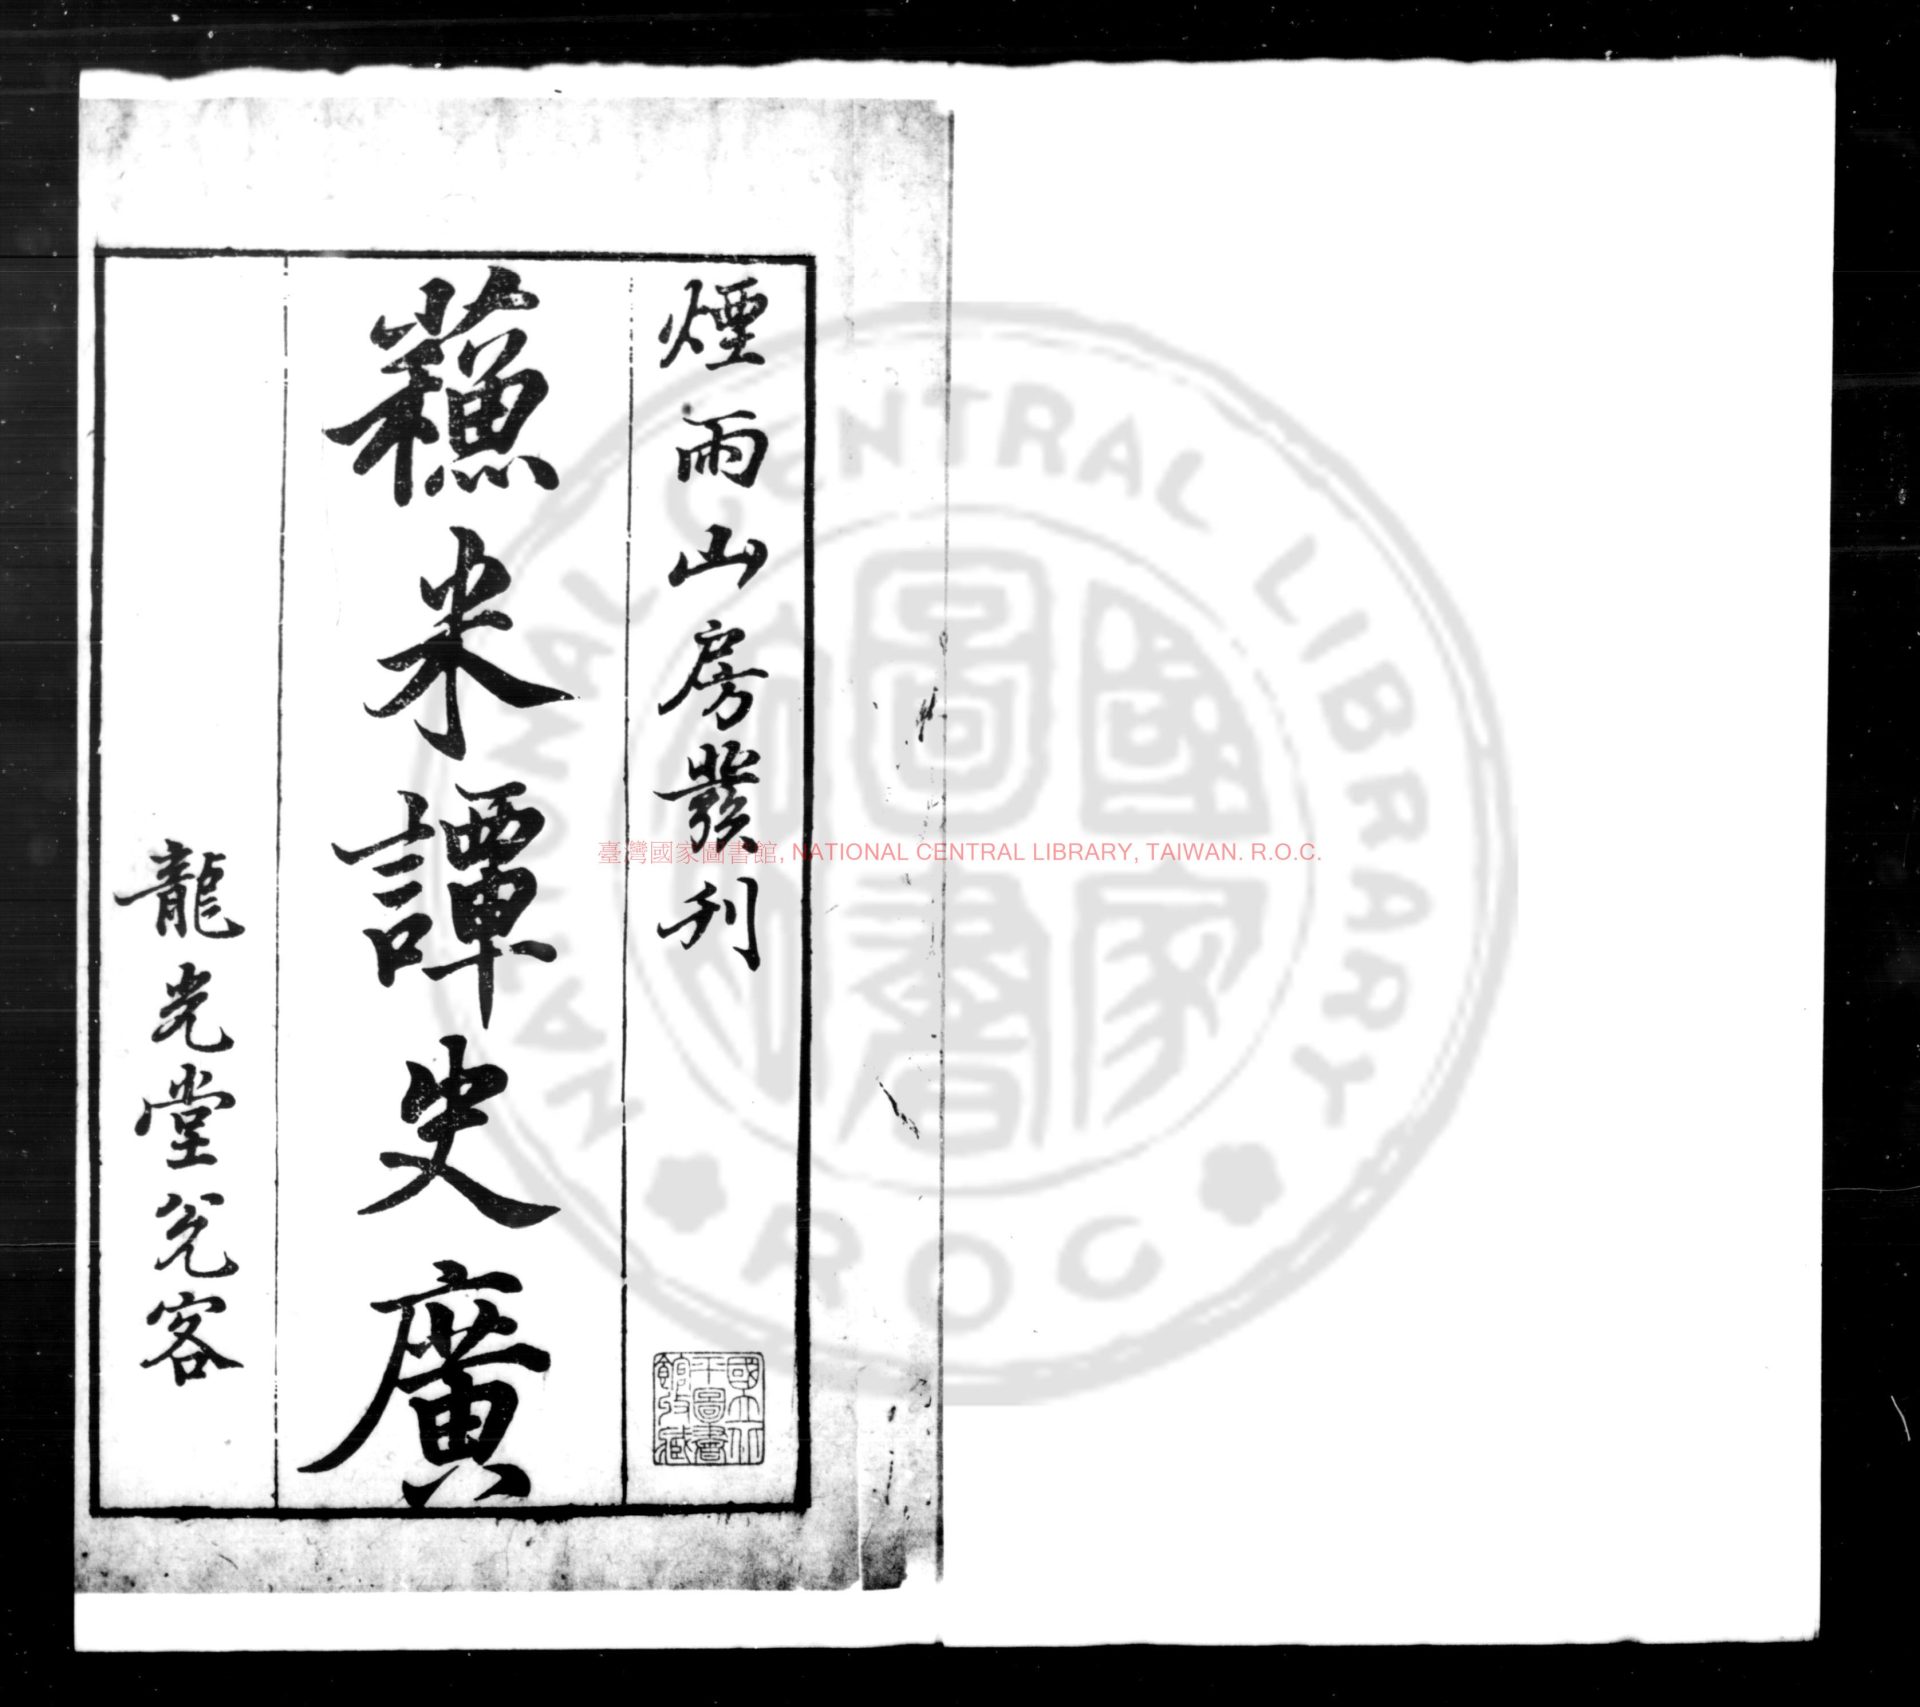 煙雨山房發刊
蘓米譚史廣
龍光堂發客
國立北
平圖書
館收藏
臺灣國家圖書館, NATIONAL CENTRAL LIBRARY, TAIWAN. R.O.C.
NATIONAL CENTRAL LIBRARY
ROC
國家圖書館